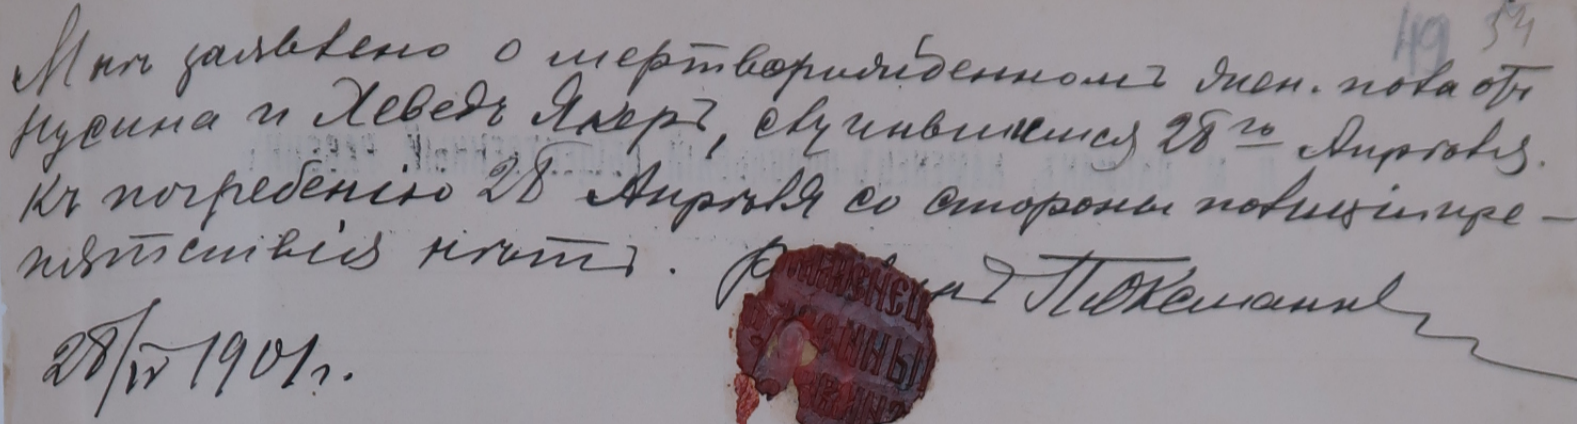 49 54
Мнѣ заявлено о мертворожденномъ жен. пола отъ
Нусина и Хеведъ Якеръ, случившемся 28го Апрѣля.
Къ погребенію 28 Апрѣля со стороны полиціи пре-
пятствія нѣтъ.
28/IV 1901 г.